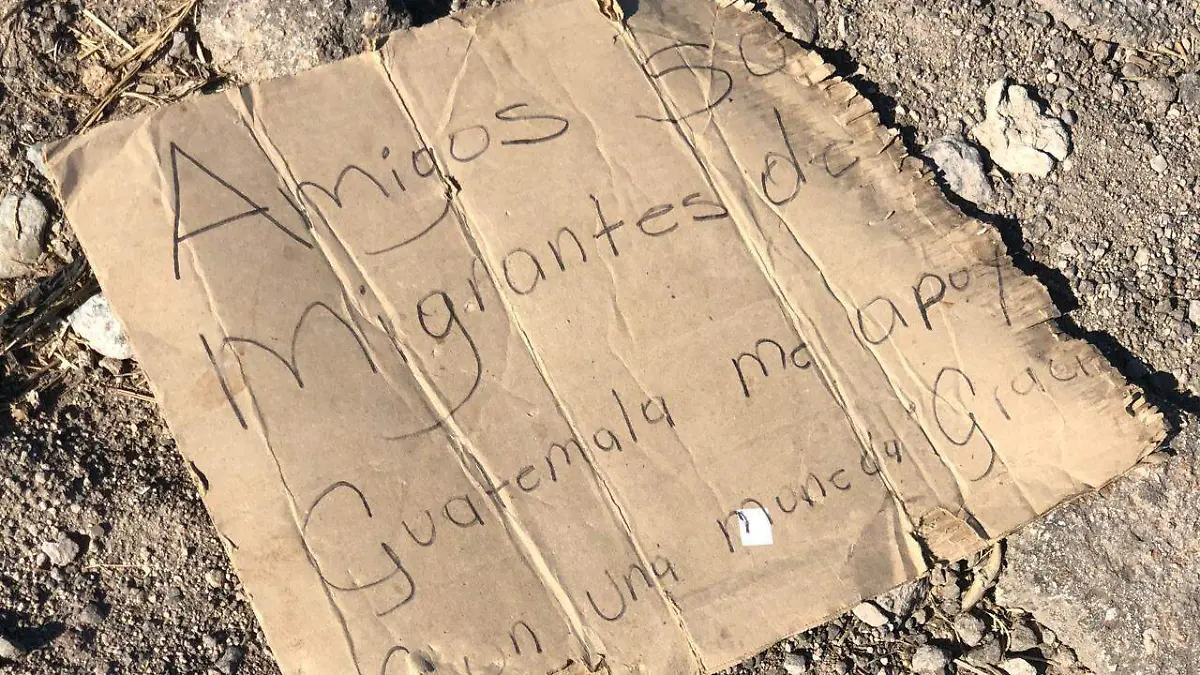 Amigos so
Migrantes de
Guatemala me apoy
Con una muneda Graci